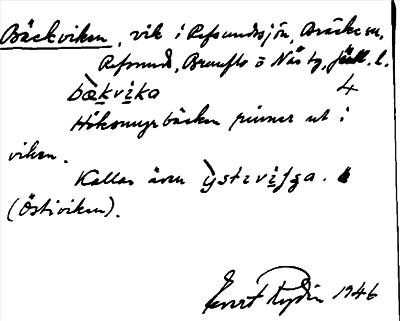 Bäckviken, vik i Refsundssjön, Bräcke sn,
Refsund, Brunflo o Näs tg, Jätl. l.
bæ̀kvika 4
Håkomyrbäcken rinner ut i
viken.
Kallas även ỳstivika.
(Östiviken).
Evert Rydin 1946